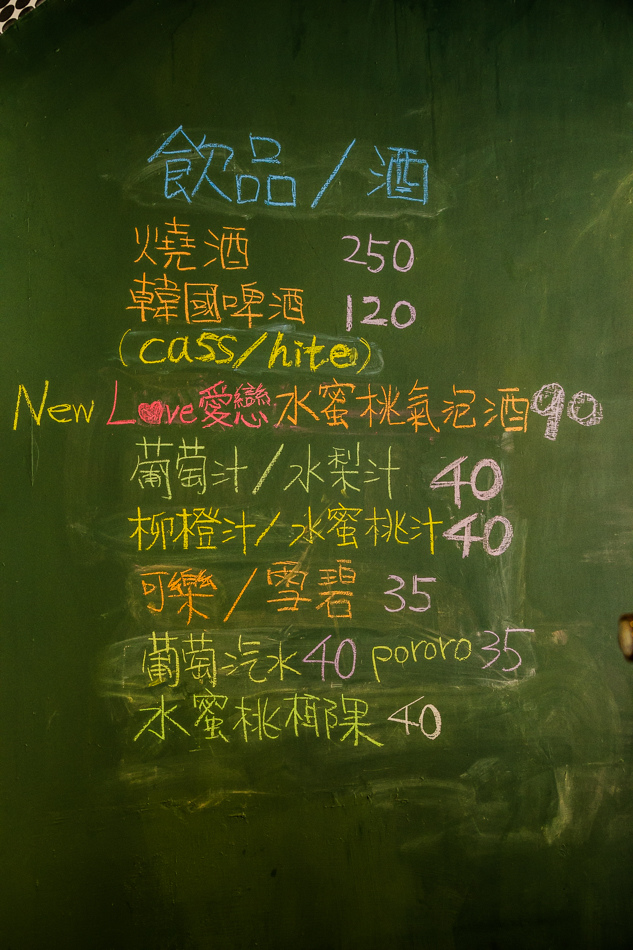 飲品/酒
燒酒 250
韓國啤酒 120
(cass/hite)
New Love愛戀水蜜桃氣泡酒90
葡萄汁/水梨汁 40
柳橙汁/水蜜桃汁40
可樂/雪碧 35
葡萄汽水40 pororo35
水蜜桃椰果 40